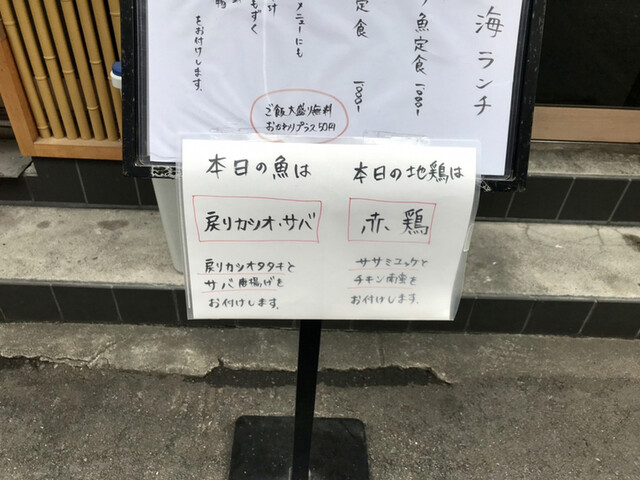 海ランチ
魚定食 1000-
定食 1000-
メニューにも
もずく
をお付けします。
ご飯大盛り無料
おかわりプラス50円
本日の魚は
戻りカツオ・サバ
戻りカツオタタキと
サバ
をお付けします。
本日の地鶏は
赤鶏
ササミユッケと
チキン南蛮を
お付けします。